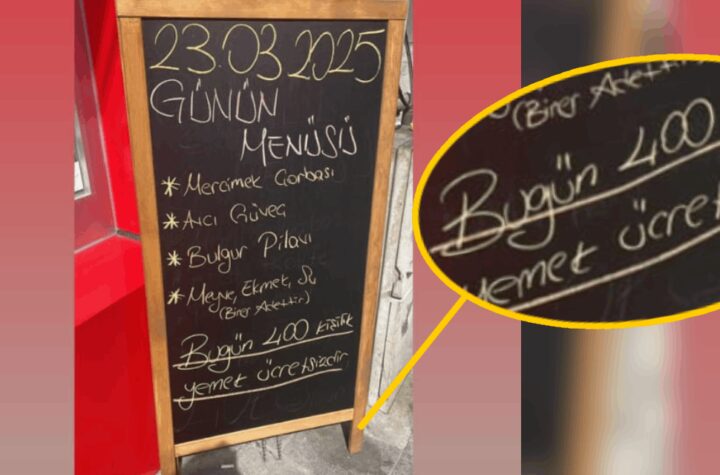 23.03.2025
GÜNÜN
MENÜSÜ
* Mercimek Çorbası
* Avcı Güveç
* Bulgur Pilavı
* Meyve, Ekmek, Su
(Birer Adettir)
Bugün 400 kişilik
yemek ücretsizdir
(Birer Adettir
Bugün 400
yemek ücret